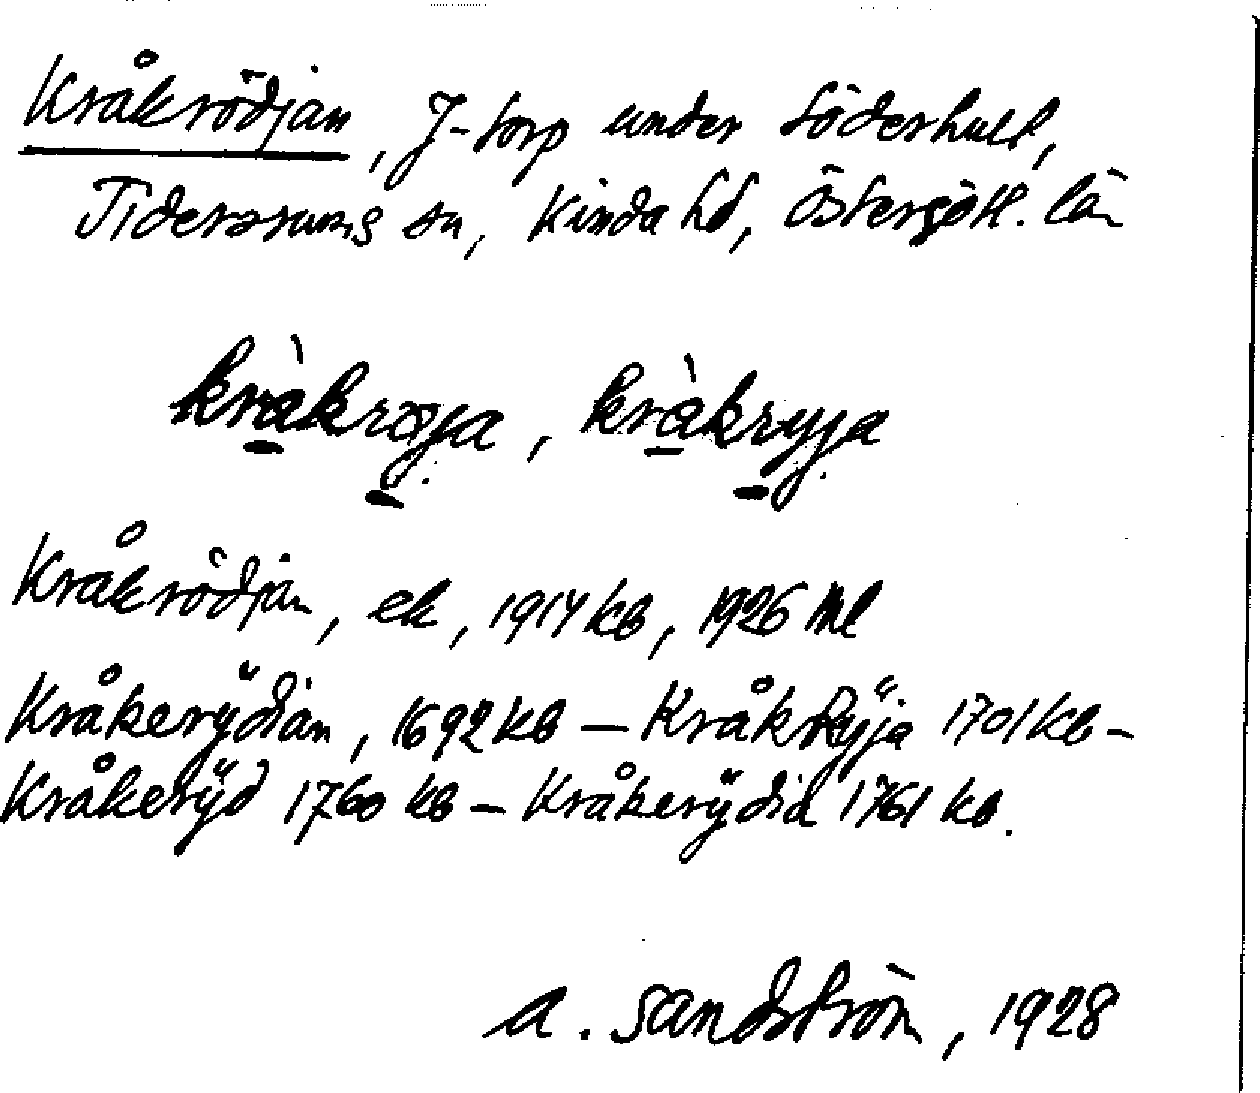 Kråkrödjan, J-torp under Söderhult,
Tidersrums sn, Kinda hd, Östergötl. län
kràkrøja, kràkryja
Kråkrödjan, ek, 1914 kb, 1926 Ml
Kråkerÿdian, 1692 kb – KråkRÿja 1701 kb –
Kråkerÿd 1760 kb – Kråkerÿdia 1761 kb.
A. Sandström, 1928